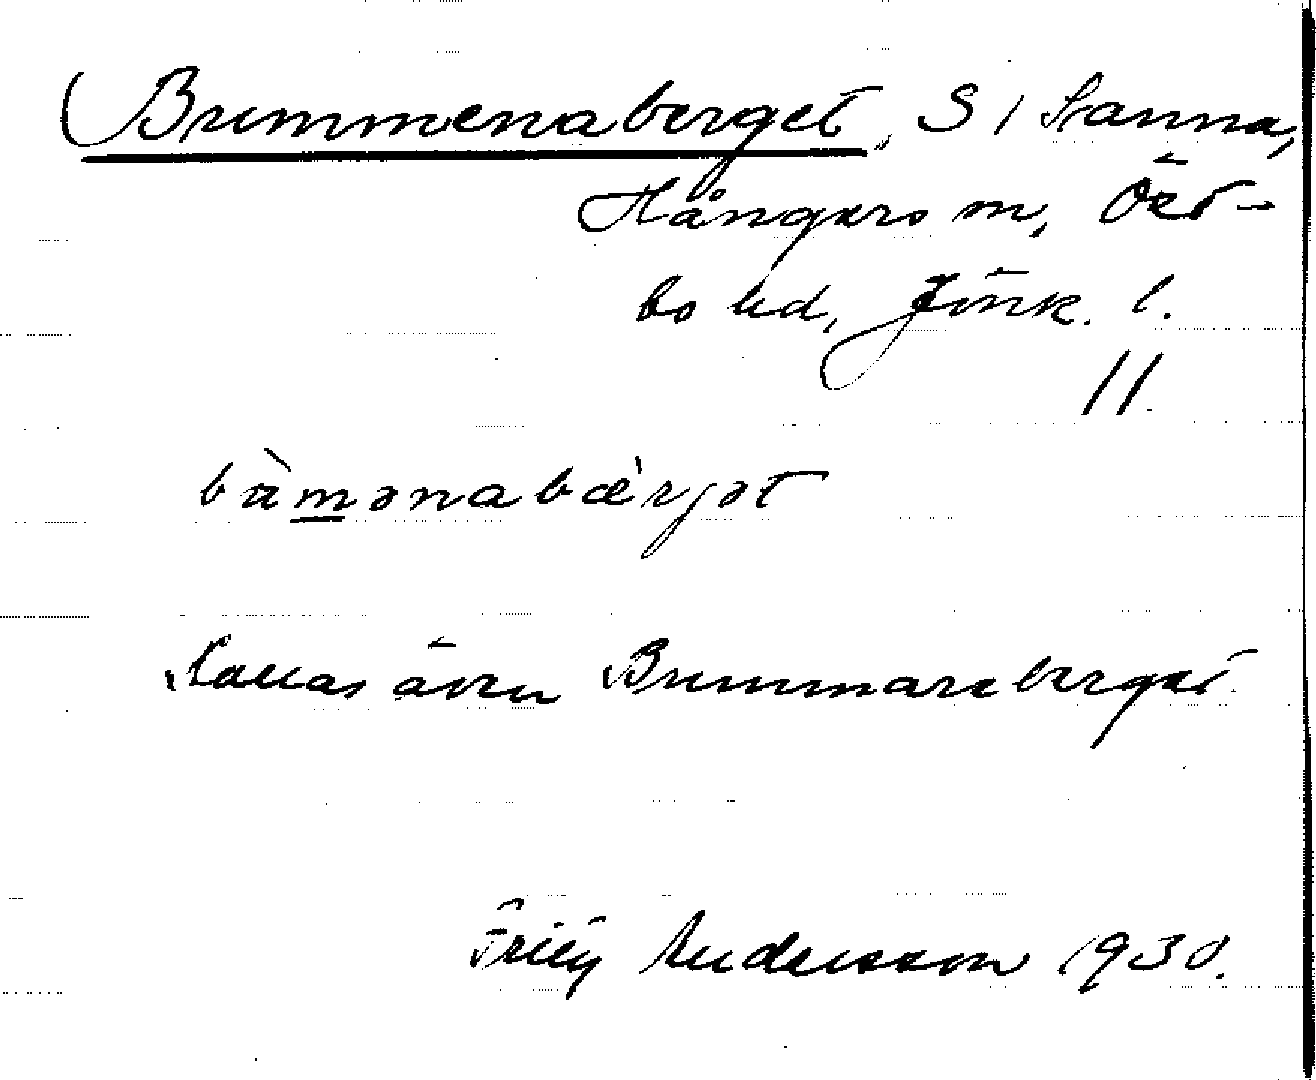 Brummenaberget, S / Sanna,
Hångers sn, Öst-
bo hd, Jönk. l.
11
bàmənabæ'rjət
Kallas även Brummareberget.
Andersson 1930.